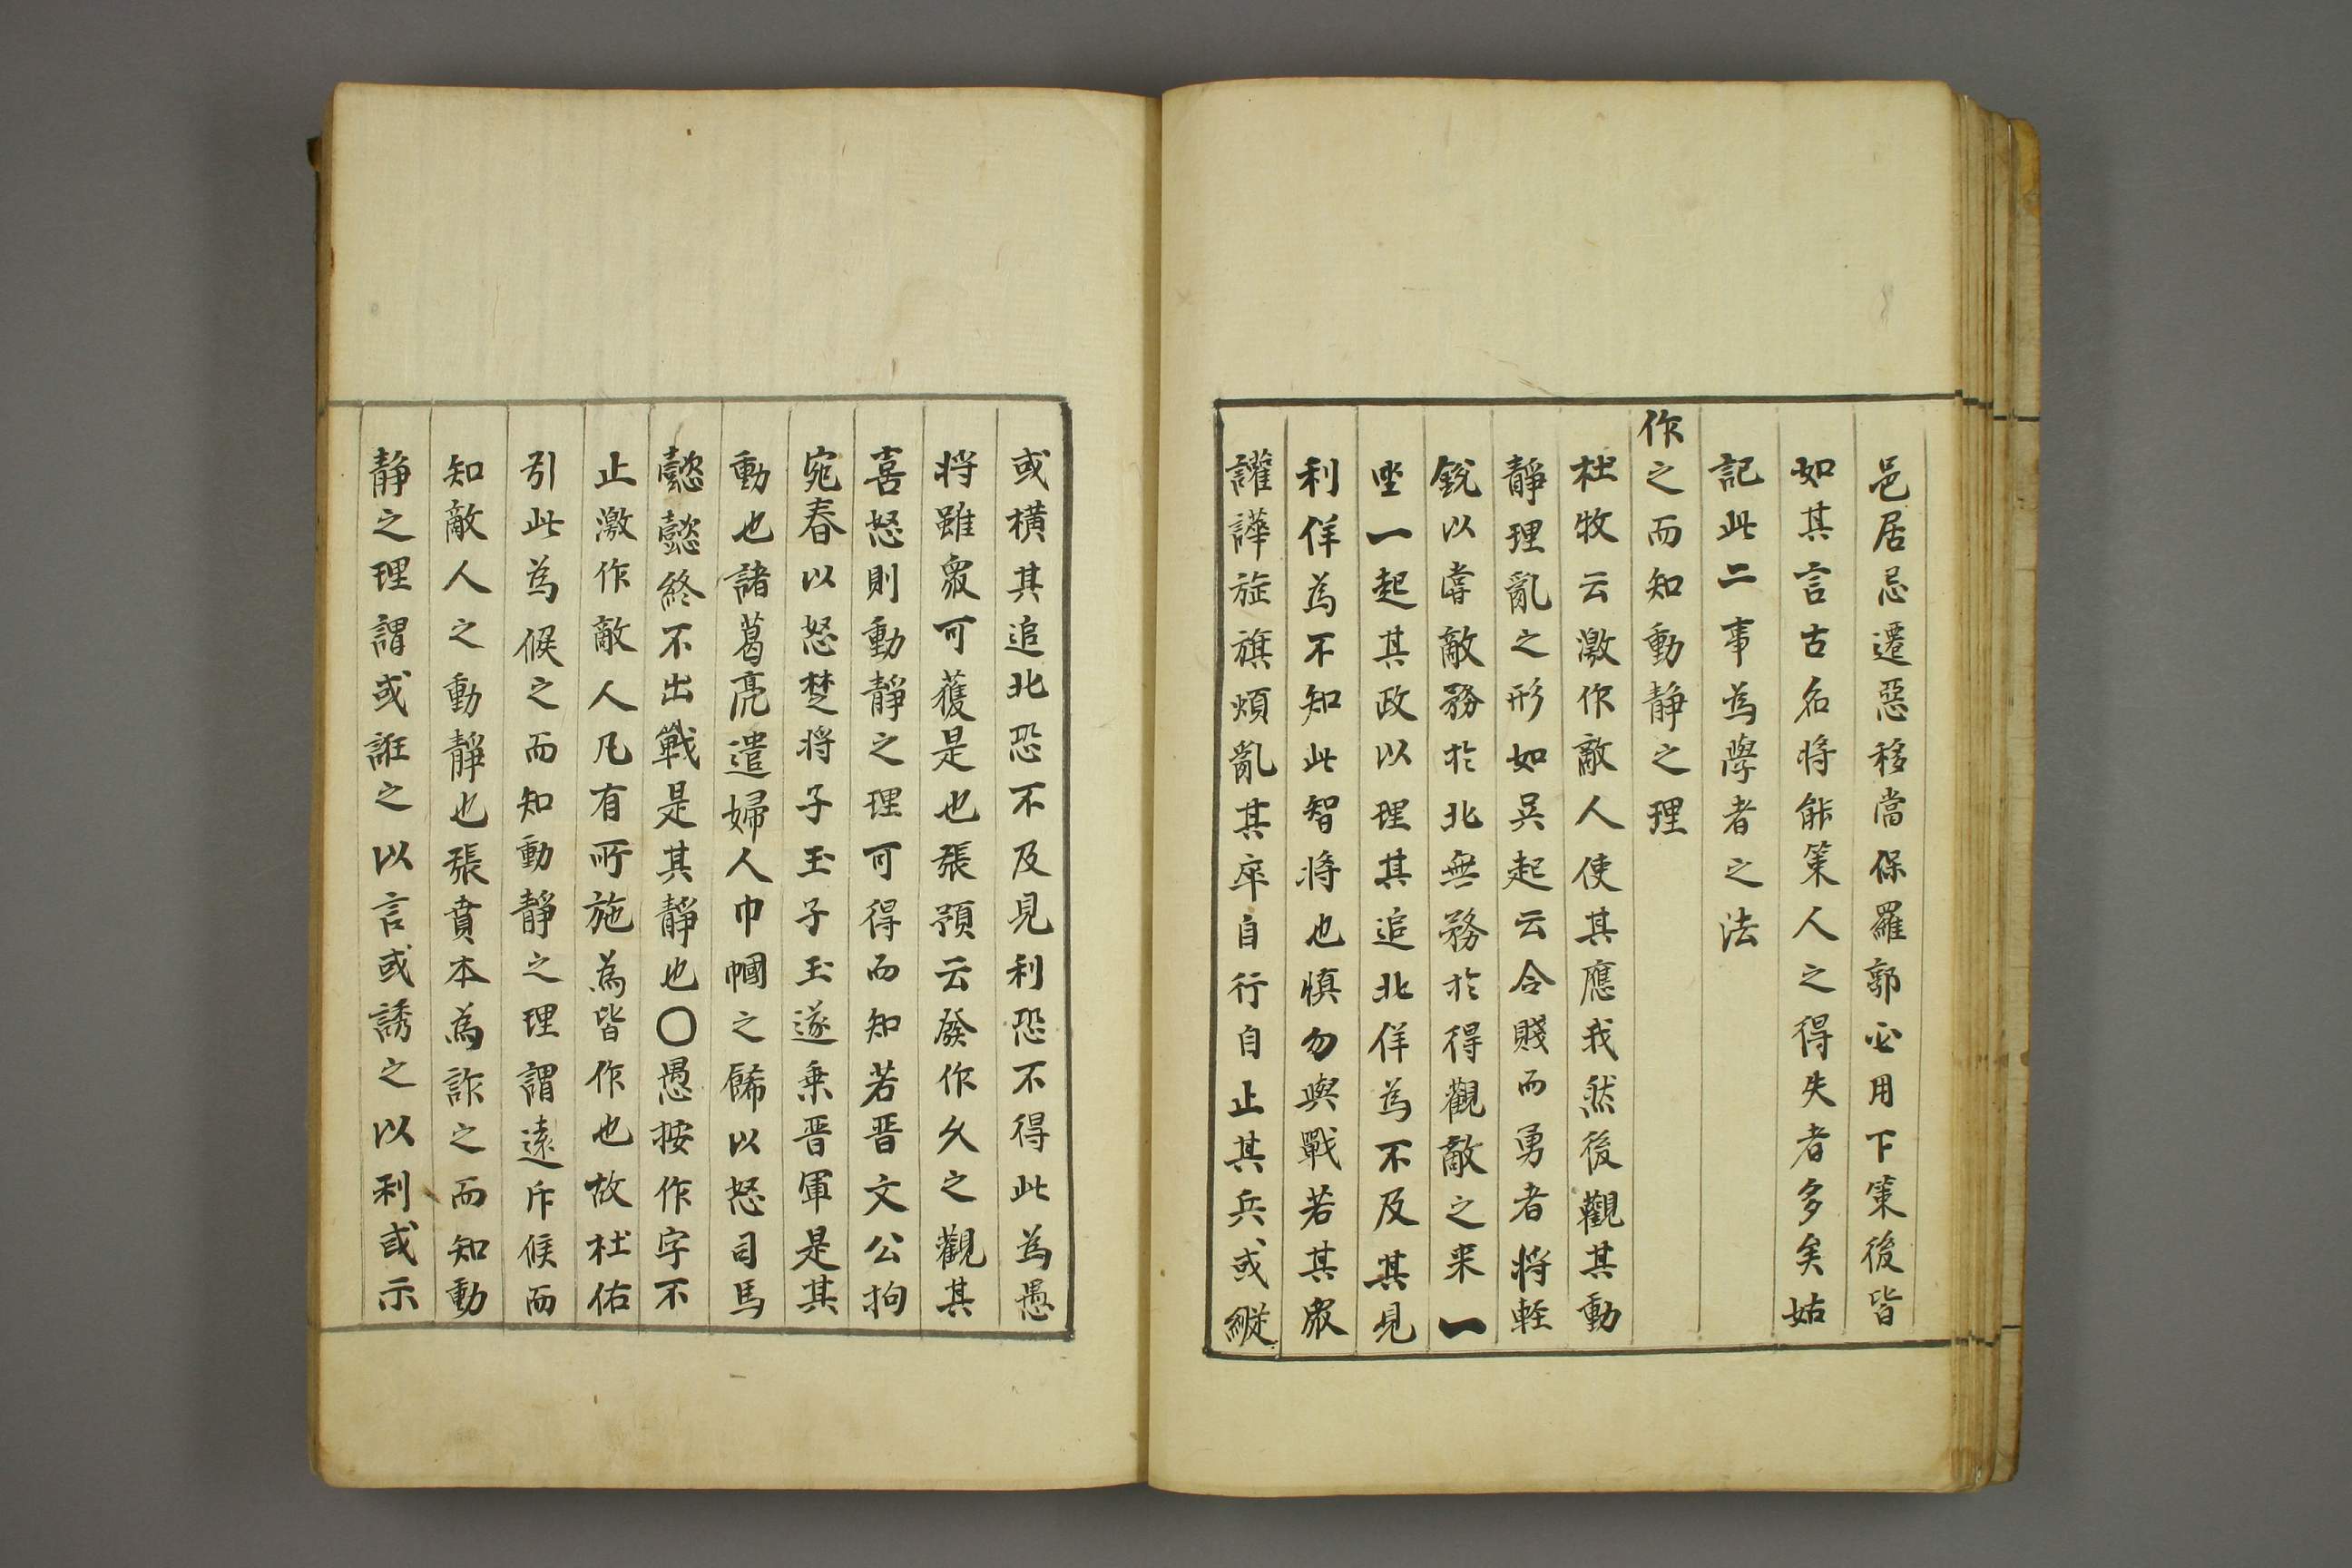 邑居忌遷惡移當保羅郭必用下策後皆
如其言古名将能策人之得失者多矣姑
記此二事為學者之法
作之而知動静之理
杜牧云激作敵人使其應我然後觀其動
静理亂之形如吳起云令賤而勇者将軽
銳以嘗敵務於北無務於得觀敵之来一
坐一起其政以理其追北佯為不及其見
利佯為不知此智将也慎勿與戰若其衆
讙譁旌旗煩亂其卒自行自止其兵或縦
或横其追北恐不及見利恐不得此為愚
将雖衆可獲是也張預云發作久之觀其
喜怒則動静之理可得而知若晋文公拘
宛春以怒楚将子玉子玉遂乗晋軍是其
動也諸葛亮遣婦人巾幗之餙以怒司馬
懿懿終不出戰是其静也〇愚按作字不
止激作敵人凡有所施為皆作也故杜佑
引此為候之而知動静之理謂遠斥候而
知敵人之動静也張賁本為詐之而知動
静之理謂或誑之以言或誘之以利或示